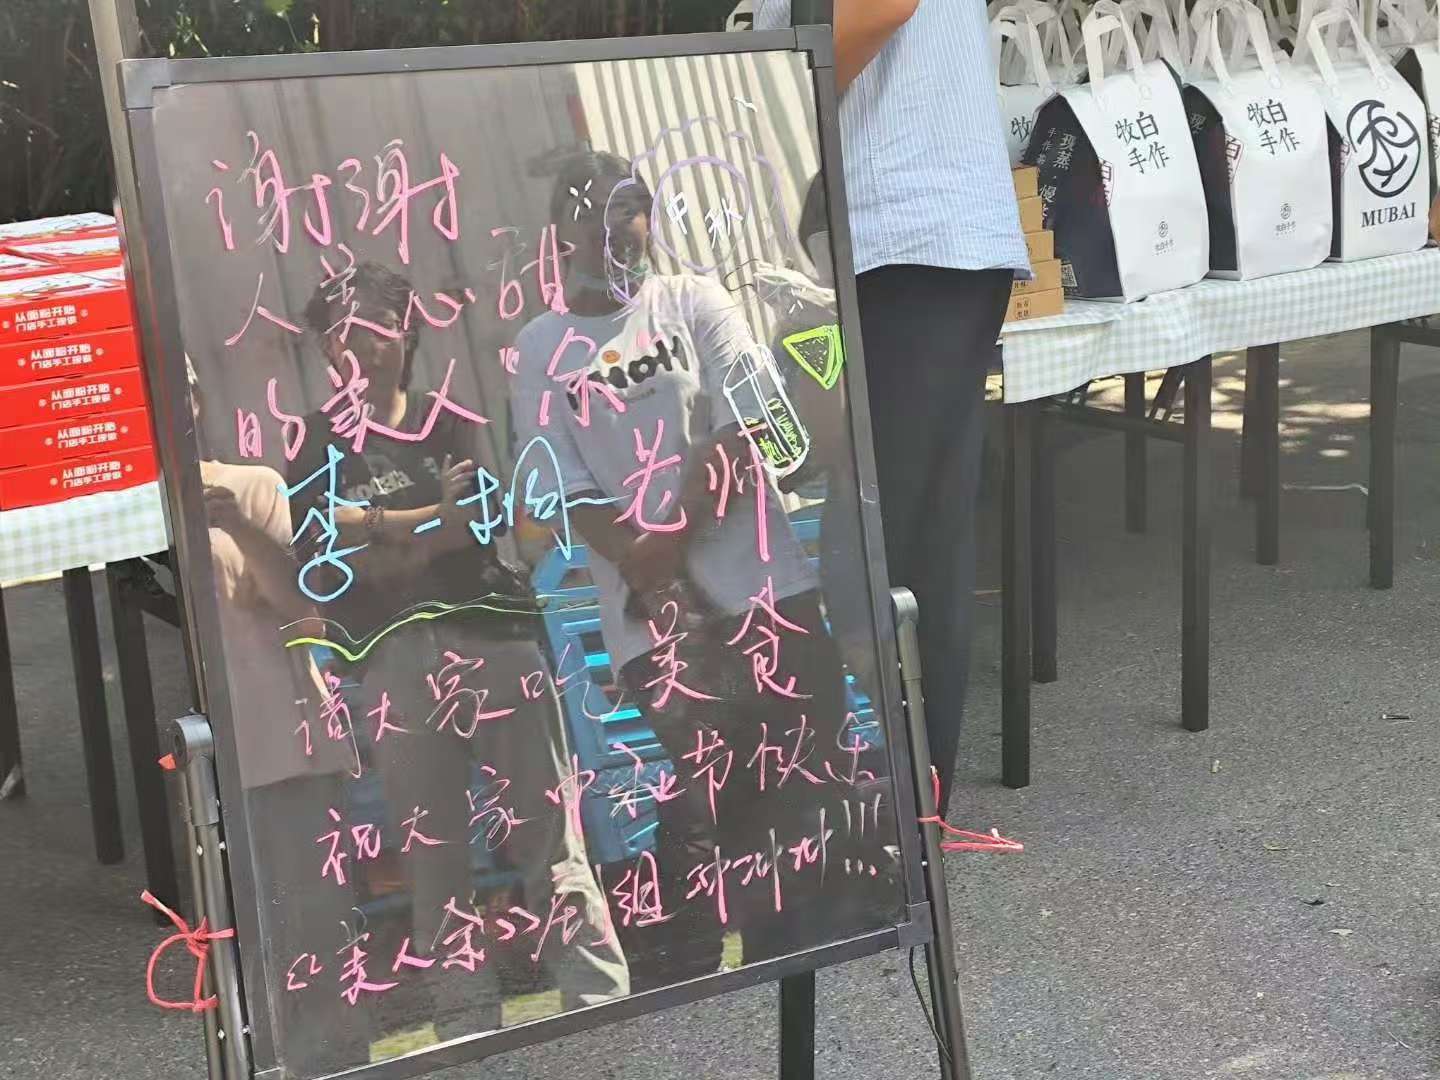 谢谢
中秋
人美心甜
的美人"余"
李一桐老师
请大家吃美食
祝大家中秋节快乐
《美人余》剧组冲冲冲!!!
从面粉开始
门店手工现做
从面粉开始
门店手工现做
从面粉开始
门店手工现做
从面粉开始
门店手工现做
从面粉开始
门店手工现做
牧白
手作
现蒸
牧白手作
牧白
手作
牧白手作
MUBAI